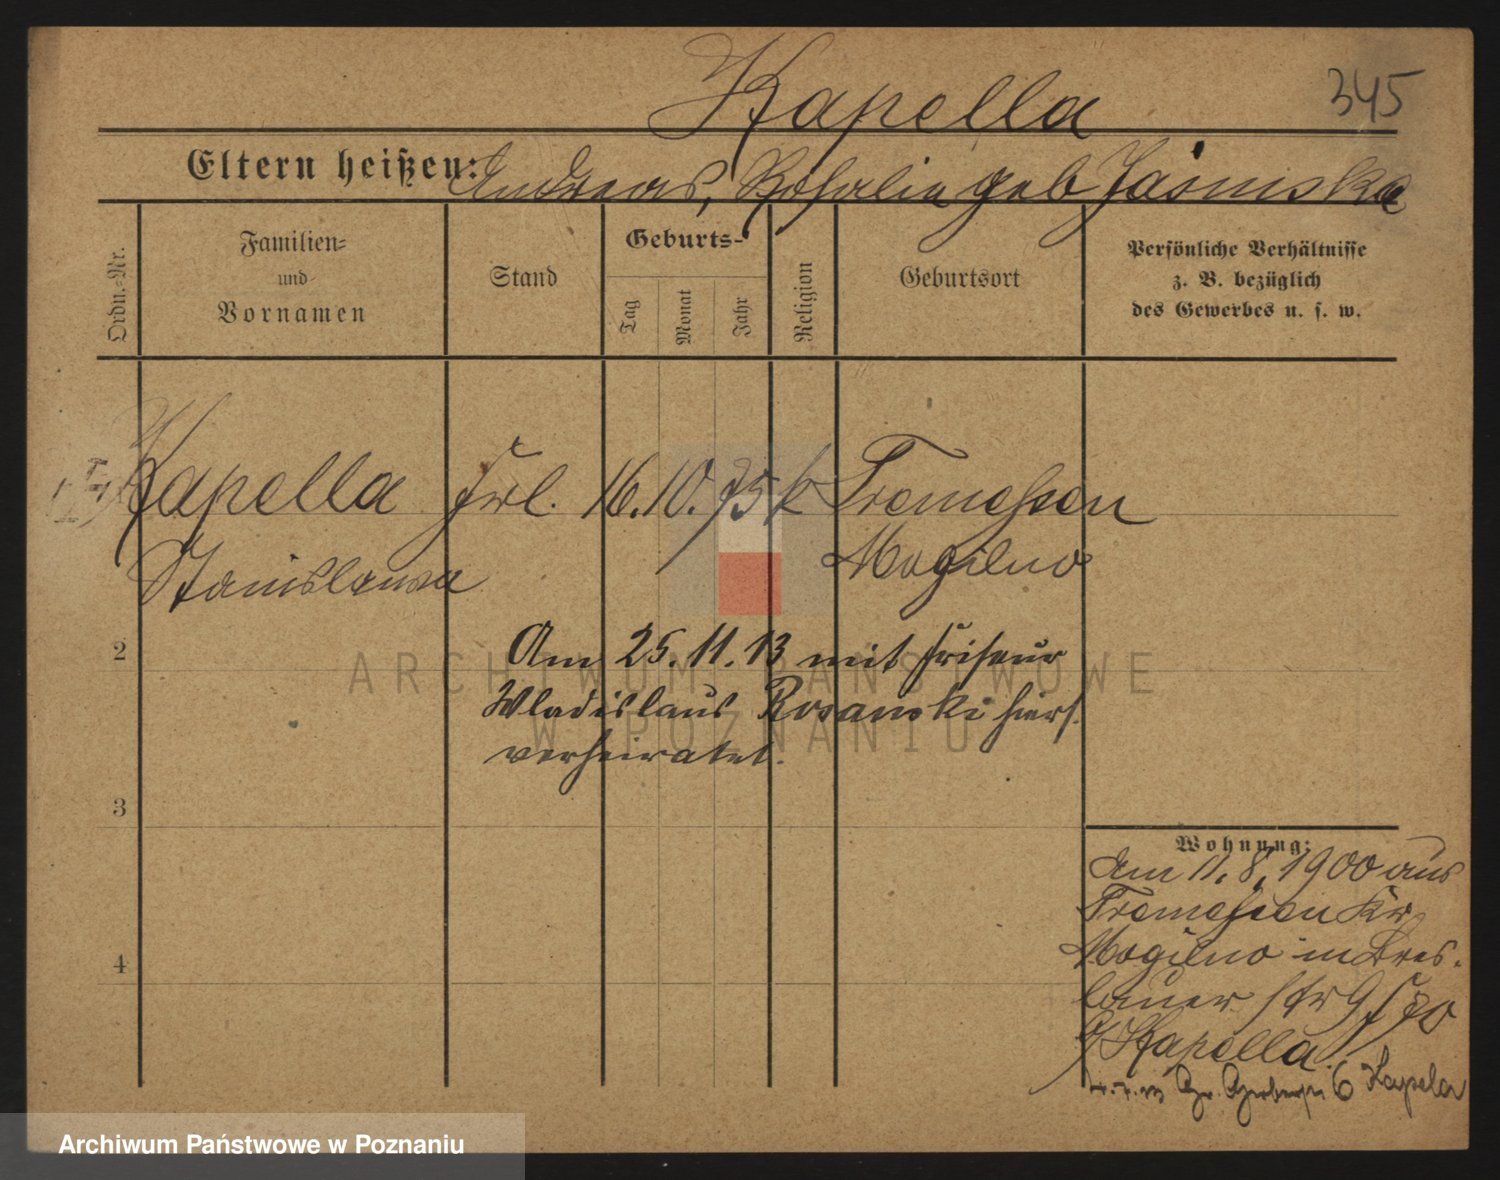 Kapella
345
Eltern heißen: Andreas, Rosalie geb Jasinska
Ordn.-Nr.
Familien-
und
Vornamen
Stand
Geburts-
Tag
Monat
Jahr
Religion
Geburtsort
Persönliche Verhältnisse
z. B. bezüglich
des Gewerbes u. s. w.
Kapella Frl. 16. 10. 75 k Tremessen
Stanislawa Mogilno
2
Am 25. 11. 13 mit Friseur
Wladislaus Rosanski hiers.
verheiratet.
3
4
Wohnung:
Am 11. 8. 1900 aus
Tremessen Kr
Mogilno in Bres-
lauer str 9
Kapella
Gr. 6 Kapela
ARCHIWUM PAŃSTWOWE
W POZNANIU
Archiwum Państwowe w Poznaniu